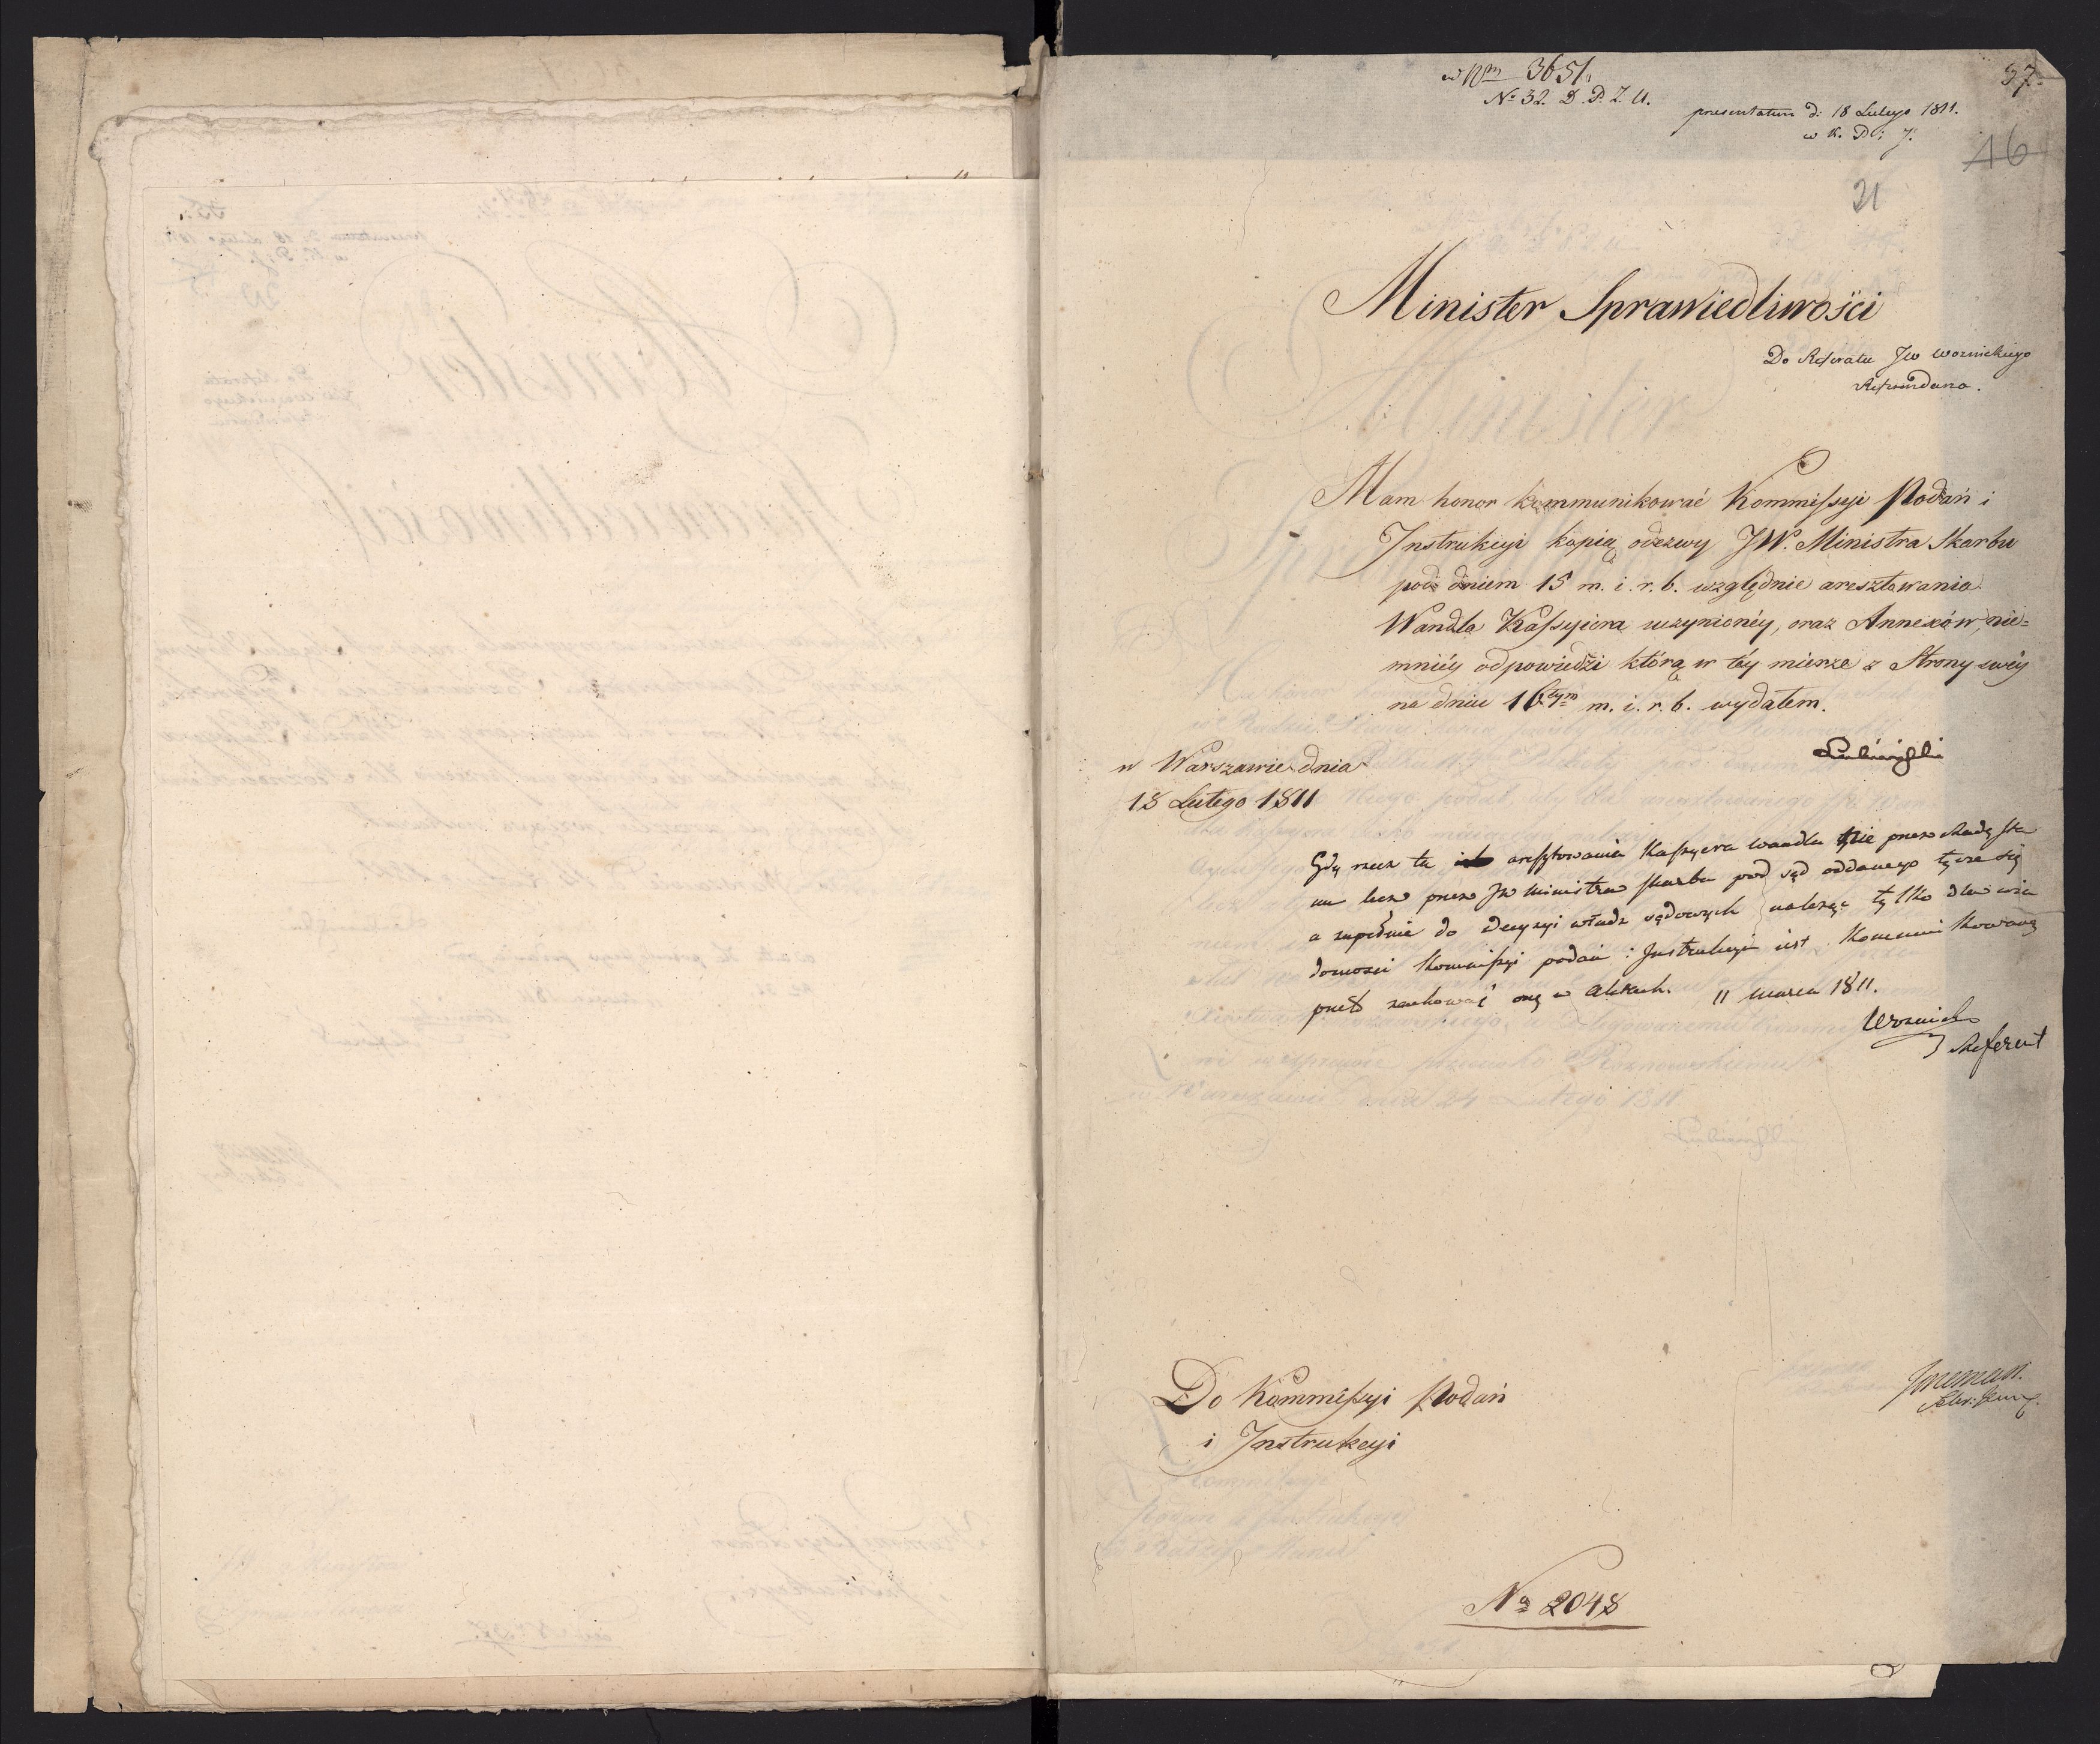 w Nrm 3651.
No 32. D. P. Z. U.
37.
presentatum d: 18 Lutego 1811.
w K. P: i J.
46
21
Minister Sprawiedliwości
Do Referatu JW Woznickiego
Referendarza.
Mam honor kommunikować Kommissyi Podań i
Instrukcyi kopią odezwy JW. Ministra Skarbu
pod dniem 15 m. i. r. b. względnie aresztowania
Wandla Kassyiera uczynionéy, oraz Annexów, nie-
mniéy odpowiedzi którą w téy mierze z Strony swéy
na dniu 16tym m. i. r. b. wydałem.
Łubieński
w Warszawie dnia
18 Lutego 1811
Gdy rzecz ta aresztowania Kassyera Wandla nie przez Radę Sta
nu lecz przez JW Ministra Skarbu pod sąd oddanego tycze się
a zupełnie do decyzyi władz sądowych należąc tylko dla wia
domości Kommissyi podań i Instrukcyi iest kommunikowaną
przeto zachować onę w aktach. 11 Marca 1811.
Woznicki
Referent
Do Kommissyi Podań
i Instrukcyi
No 2048